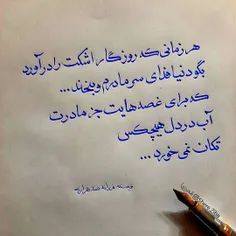 هر زمانی که روزگار اشکت را درآورد
بگو دنیا فدای سر مادرم و بخند...
که برای غصه هایت جز مادرت
آب در دل هیچکس
تکان نمی خورد ...
نویسنده: فرزانه صدهزاری